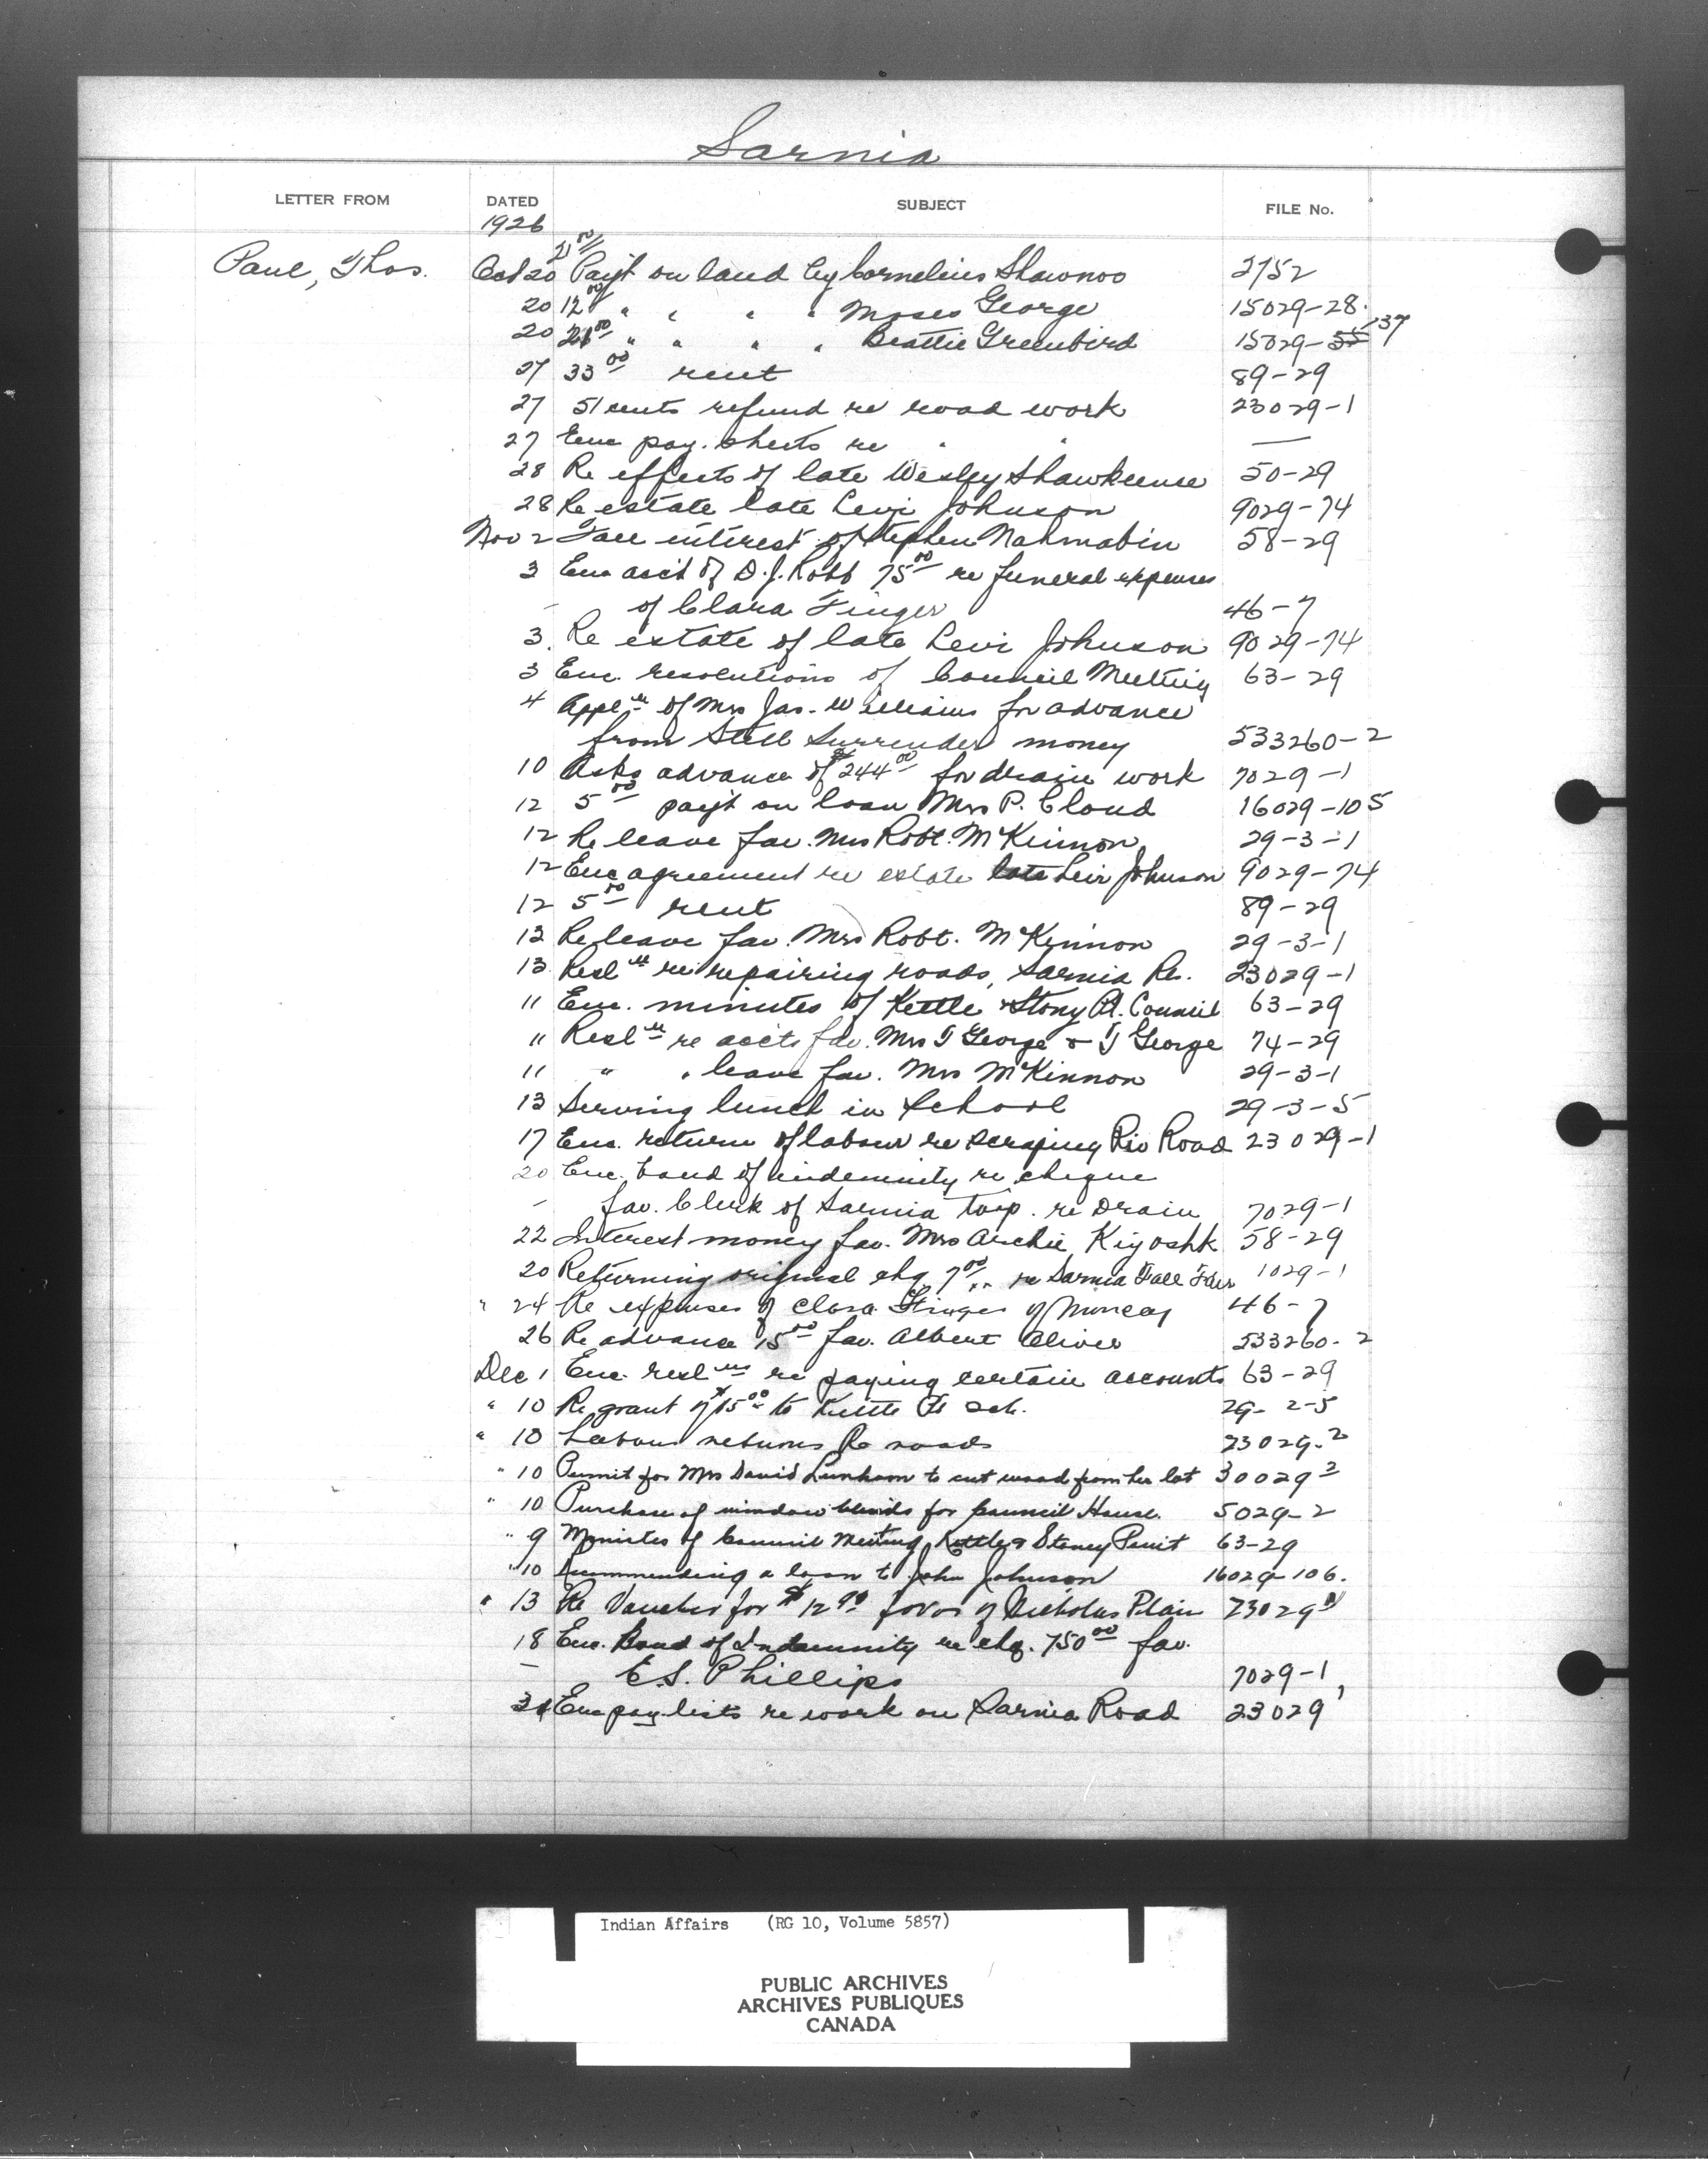 Sarnia
LETTER FROM DATED SUBJECT FILE No.
1926
Paul, Thos. Oct 20 21 00 Pay't on land by Cornelius Shawnoo 2752
20 12 00 " " " " Moses George 15029-28.
20 21 00 " " " " Beattie Greenbird 15029-35 -37
27 33 00 rent 89-29
27 51 cents refund re road work 23029-1
27 Enc pay. sheets re " " —
28 Re effects of late Wesley Shawkeence 50-29
28 Re estate late Levi Johnson 9029-74
Nov 2 Fall interest of Stephen Nahmabin 58-29
3 Enc acc't of D.J. Robb 75 00 re funeral expenses
- of Clara Finger 46-7
3. Re estate of late Levi Johnson 9029-74
3 Enc. resolutions of Council Meeting 63-29
4 Appl'n of Mrs Jas. Williams for advance
from Still Surrender money 533260-2
10 Asks advance of $244 00 for drain work 7029-1
12 5 00 pay't on loan Mrs P. Cloud 16029-105
12 Re leave fav. Mrs Robt. McKinnon 29-3-1
12 Enc agreement re estate late Levi Johnson 9029-74
12 5 00 rent 89-29
12 Re leave fav. Mrs Robt. McKinnon 29-3-1
13 Resl'n re repairing roads, Sarnia Rs. 23029-1
11 Enc. minutes of Kettle & Stony Pt. Council 63-29
11 Resl'n re accts fav. Mrs T George & T George 74-29
11 " " leave fav. Mrs McKinnon 29-3-1
13 Serving lunch in School 29-3-5
17 Enc. return of labour re scraping Riv Road 23029-1
20 Enc. bond of indemnity re cheque
- fav. Clerk of Sarnia Twp. re Drain 7029-1
22 Interest money fav. Mrs Archie Kiyoshk 58-29
20 Returning original chq 7 00 re Sarnia Fall Fair 1029-1
" 24 Re expenses of Clara Finger of Muncey 46-7
26 Re advance 15 00 fav. Albert Oliver 533260-2
Dec 1 Enc. resl'ns re paying certain accounts 63-29
" 10 Re grant of $15 00 to Kettle Pt Sch. 29-2-5
" 10 Labour returns Re roads 23029-2
" 10 Permit for Mrs David Lunham to cut wood from her lot 30029 2
" 10 Purchase of window blinds for Council House. 5029-2
" 9 Minutes of Council Meeting Kettle & Stoney Point 63-29
" 10 Recommending a loan to John Johnson 16029-106.
" 13 Re Voucher for $12 90 favor of Nicholas Plain 23029
18 Enc. Bond of Indemnity re chq. 750 00 fav.
— E.S. Phillips 7029-1
31 Enc pay lists re work on Sarnia Road 23029 1
Indian Affairs (RG 10, Volume 5857)
PUBLIC ARCHIVES
ARCHIVES PUBLIQUES
CANADA